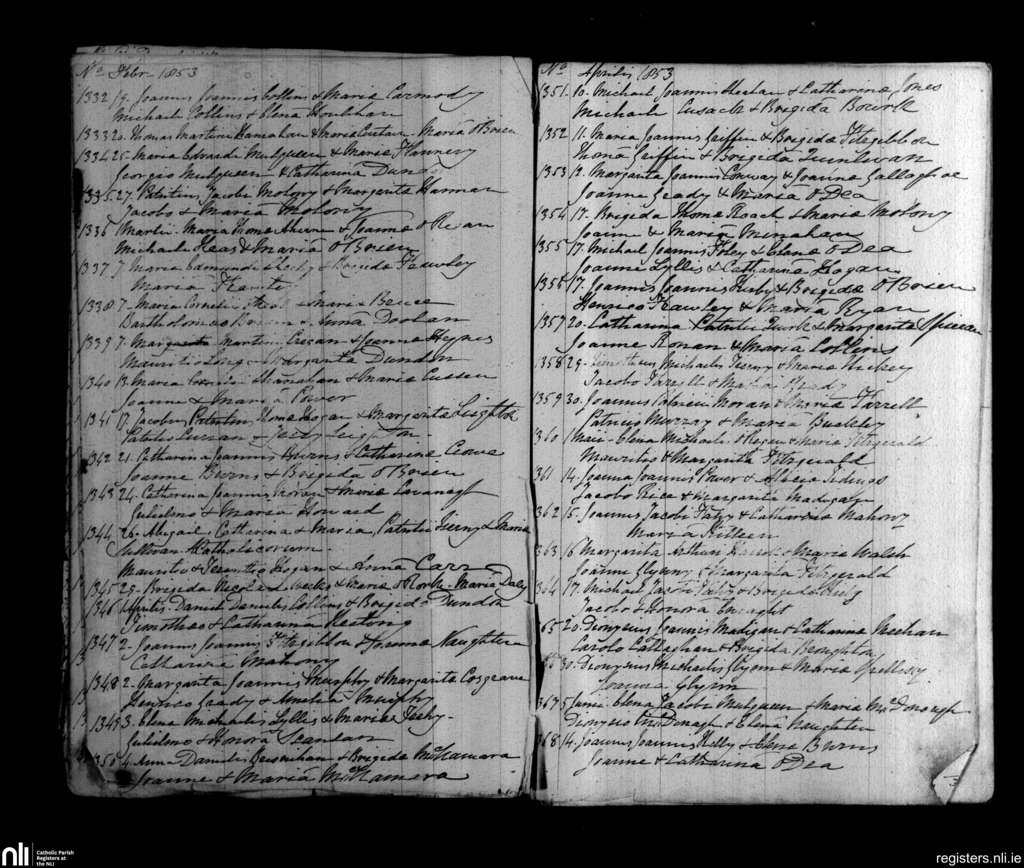 No Febr 1853
1332 19. Joannis Joannis Collins & Maria Carmody
Michael Collins & Elena Houlihan
1333 20. Thomas Martini Hanrahan & Maria Maria O'Brien
1334 25. Maria Edvardi Mulqueen & Maria Flannery
Georgio Mulqueen & Catharina Dundo
1335. 27. Patritii Jacobi Molony & Margarita Hannan
Jacobo & Maria Molony
1336 1 Martii. Maria Thoma Ahern & Joanne
Michael Heas & Maria O'Brien
1337 7. Maria Edmundi & Brigida Frawley
Maria
1338 7. Maria Cornelii & Maria Bence
Bartholomeo & Anna Doolan
1339 7. Margarita Martini Cregan & Joanna Heynes
Mauritio Long & Margarita Dundon
1340 13. Maria Cornelii Shanahan & Maria Cussen
Joanne & Maria Power
1341 17. Jacobus Patritii Hogan & Margarita Leighton
Patritio & Leighton.
1342 21. Catharina Joannis Burns & Catharina
Joanne Burns & Brigida O'Brien
1343 24. Catherina Joannis Moran & Maria Cavanagh
Gulielmo & Maria Howard
1344 26. Abigail, Catharina & Maria, Patritii Tierny & Maria
Sullivan Acatholicorum.
Mauritio & Terentio Hogan & Anna Carr
1345 29. Brigida Nicolai Meehy & Maria O'Rorke. Maria Daly
1346 1 Aprilis. Daniel Danielis Collins & Brigida Dundon
Timotheo & Catharina Keating
1347 2. Joannis Joannis Fitzgibbon & Joanna Naughten
Catharina Mahony
1348 2. Margarita Joannis Murphy & Margarita Cosgrave
Henrico Grady & Amelia Murphy
1349 3. Elena Michaelis Lyllis & Maria Feehy.
Gulielmo & Honora Scanlan
1350 4. Anna Danielis & Brigida McNamara
Joanne & Maria McNamara
No Aprilis 1853
1351. 10. Michael Joannis Meehan & Catharina Jones
Michael Cusack & Brigida Bourke
1352 11. Maria Joannis Griffin & Brigida Fitzgibbon
Thoma Griffin & Brigida Quinlivan
1353 12. Margarita Joannis Conway & Joanna Gallagher
Joanne Grady & Maria O'Dea
1354 17. Brigida Thoma Roach & Maria Molony
Joanne & Maria Minahan
1355 17. Michael Joannis Foley & Elena O'Dea
Joanne Lyllis & Catharina Hogan
1356 17. Joannis Joannis Kirby & Brigida O'Brien
Henrico Frawley & Maria Ryan
1357 20. Catharina Patritii Burke & Margarita
Joanne Ronan & Maria Collins
1358 29. Michaelis Tierny & Maria Hickey
Jacobo Farrell & Maria Grady
1359 30. Joannis Patricii Moran & Maria Farrell,
Patricio Murray & Maria Buckley
1360 1 Maii. Elena Michaelis O'Regan & Maria Fitzgerald
Mauritio & Margarita Fitzgerald
361 14. Joanna Joannis Power & Alicia
Jacobo Rice & Margarita Madigan
362 15. Joannis Jacobi Fahy & Catharina Mahony
Maria Kilteen
363 16 Margarita Arthuri & Maria Walsh
Joanne Glynny & Margarita Fitzgerald
364 17. Michael Jacobi Fahy & Brigida
Jacobo & Honora Enright
365 20. Dionysius Joannis Madigan & Catharina Meehan
Carolo Callaghan & Brigida Naughton
30. Dionysius Michaelis Glynn & Maria Spellesy
Joanna Glynn
367 5 Junii. Elena Jacobi Mulqueen & Maria McDonough
Dionysio McDonagh & Elena Naughten
368 14. Joannis Joannis Kelly & Elena Burns
Joanne & Catharina O'Dea
3
nli
Catholic Parish
Registers at
the NLI
registers.nli.ie